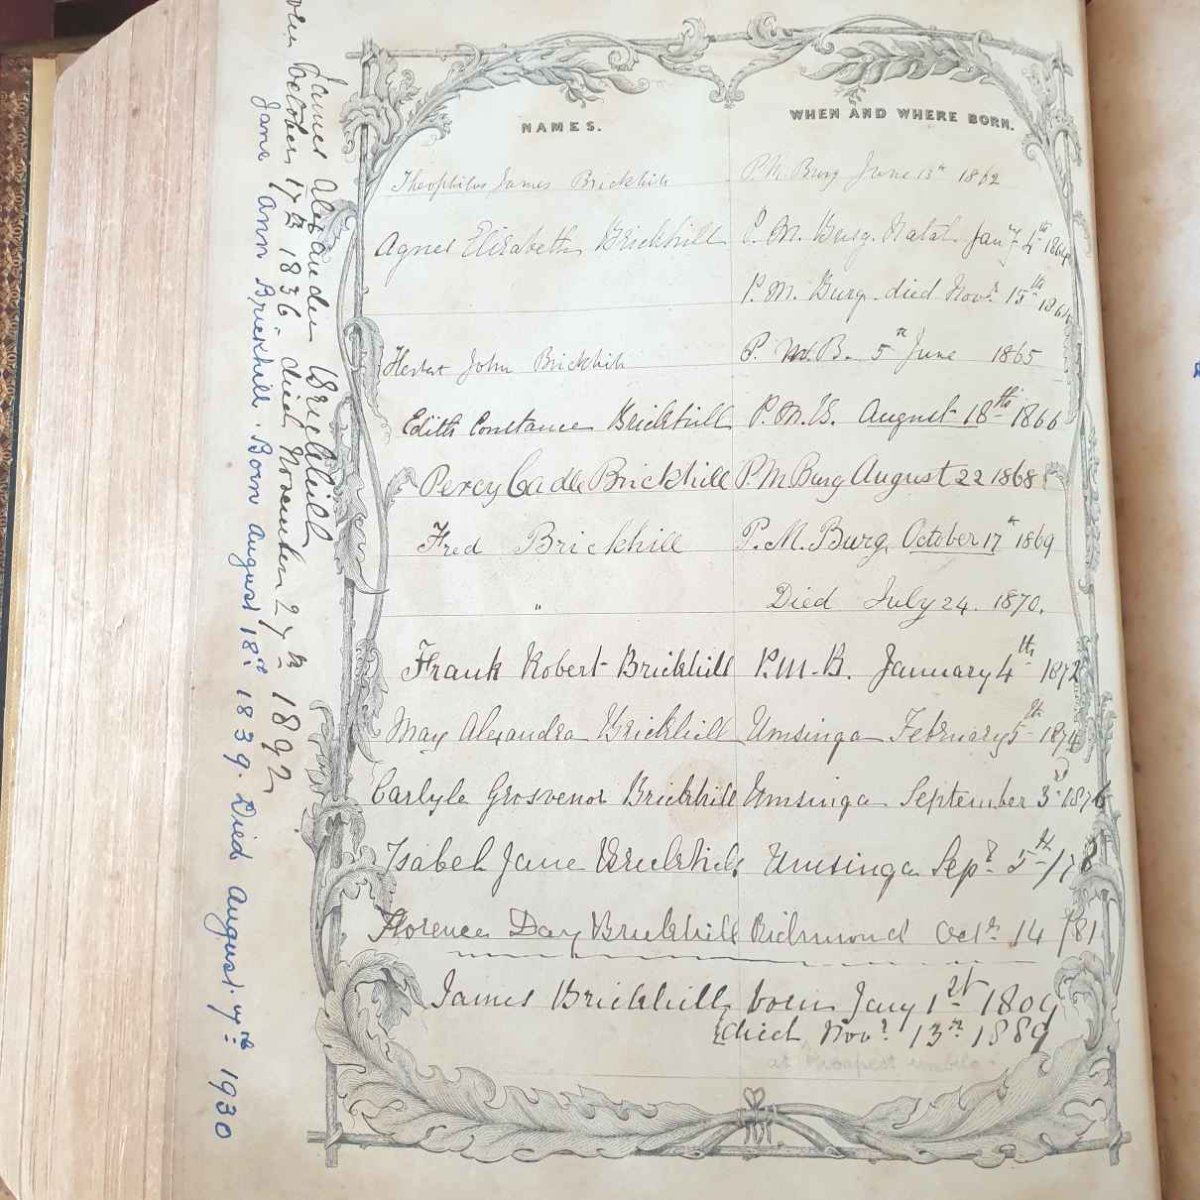 NAMES. WHEN AND WHERE BORN.
Theophilus James Brickhill P.M. Burg June 13th 1862
Agnes Elizabeth Brickhill P. M. Burg. Natal Jany 4th 1864
P. M. Burg died Novr 15th 1864
Herbert John Brickhill P. M. B. 5th June 1865
Edith Constance Brickhill P. M. B. August 18th 1866
Percy Cadle Brickhill P M Burg August 22 1868
Fred Brickhill P. M. Burg, October 17th 1869
" Died July 24. 1870.
Frank Robert Brickhill P. M. B. January 4th 1872
May Alexandra Brickhill Umsinga February 5th 1874
Carlyle Grosvenor Brickhill Umsinga September 3rd 1876
Isabel Jane Brickhill Umsinga Sepr 5th /78
Florence Day Brickhill Richmond Octr 14 /81
James Brickhill born Jany 1st 1809
died Novr 13th 1889
at Prospect
James Alexander Brickhill
October 17th 1836 died November 27th 1892
Jane Ann Brickhill. Born August 18th 1839. Died August 17th 1930